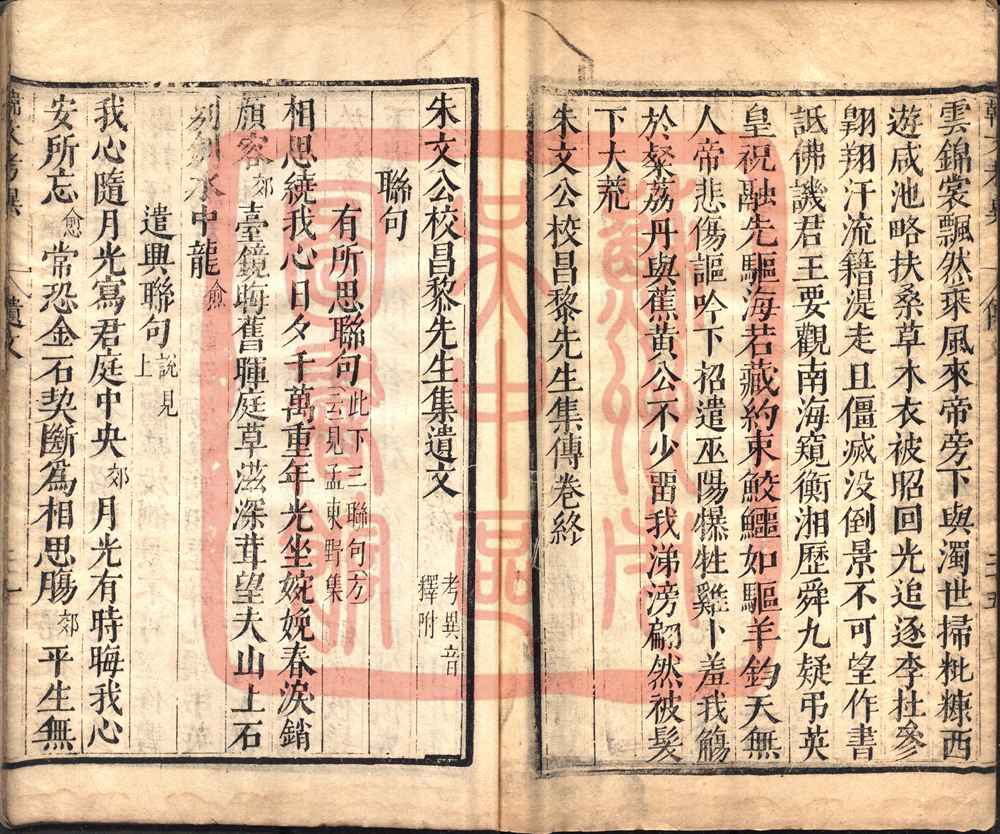 雲錦裳飄然乘風來帝旁下與濁世掃粃糠西
遊咸池略扶桑草木衣被昭回光追逐李杜參
翺翔汗流籍湜走且僵滅没倒景不可望作書
詆佛譏君王要觀南海窺衡湘歷舜九疑弔英
皇祝融先驅海若藏約束鮫鱷如驅羊鈞天無
人帝悲傷謳吟下招遣巫陽犦牲雞卜羞我觴
於粲荔丹與蕉黃公不少畱我涕滂翩然被髮
下大荒
朱文公校昌黎先生集傳卷終
朱文公校昌黎先生集遺文 考異音釋附
聯句
有所思聯句 此下三聯句方云見孟東野集
相思繞我心日夕千萬重年光坐婉娩春淚銷
顏容郊 臺鏡晦舊暉庭草滋深茸望夫山上石
別劍水中龍愈
遣興聯句 說見上
我心隨月光寫君庭中央郊 月光有時晦我心
安所忘愈 常恐金石契斷爲相思腸郊 平生無